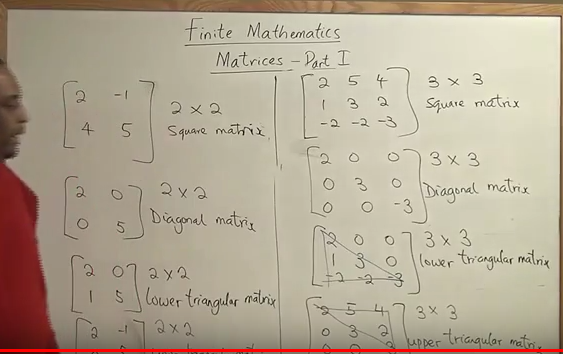 Finite Mathematics
Matrices - Part I
2 -1
4 5
2 × 2
Square matrix
2 0
0 5
2 × 2
Diagonal matrix
2 0
1 5
2 × 2
Lower triangular matrix
2 -1
2 × 2
2 5 4
1 3 2
-2 -2 -3
3 × 3
Square matrix
2 0 0
0 3 0
0 0 -3
3 × 3
Diagonal matrix
2 0 0
1 3 0
-2 -2 -3
3 × 3
lower triangular matrix
2 5 4
0 3 2
3 × 3
upper triangular